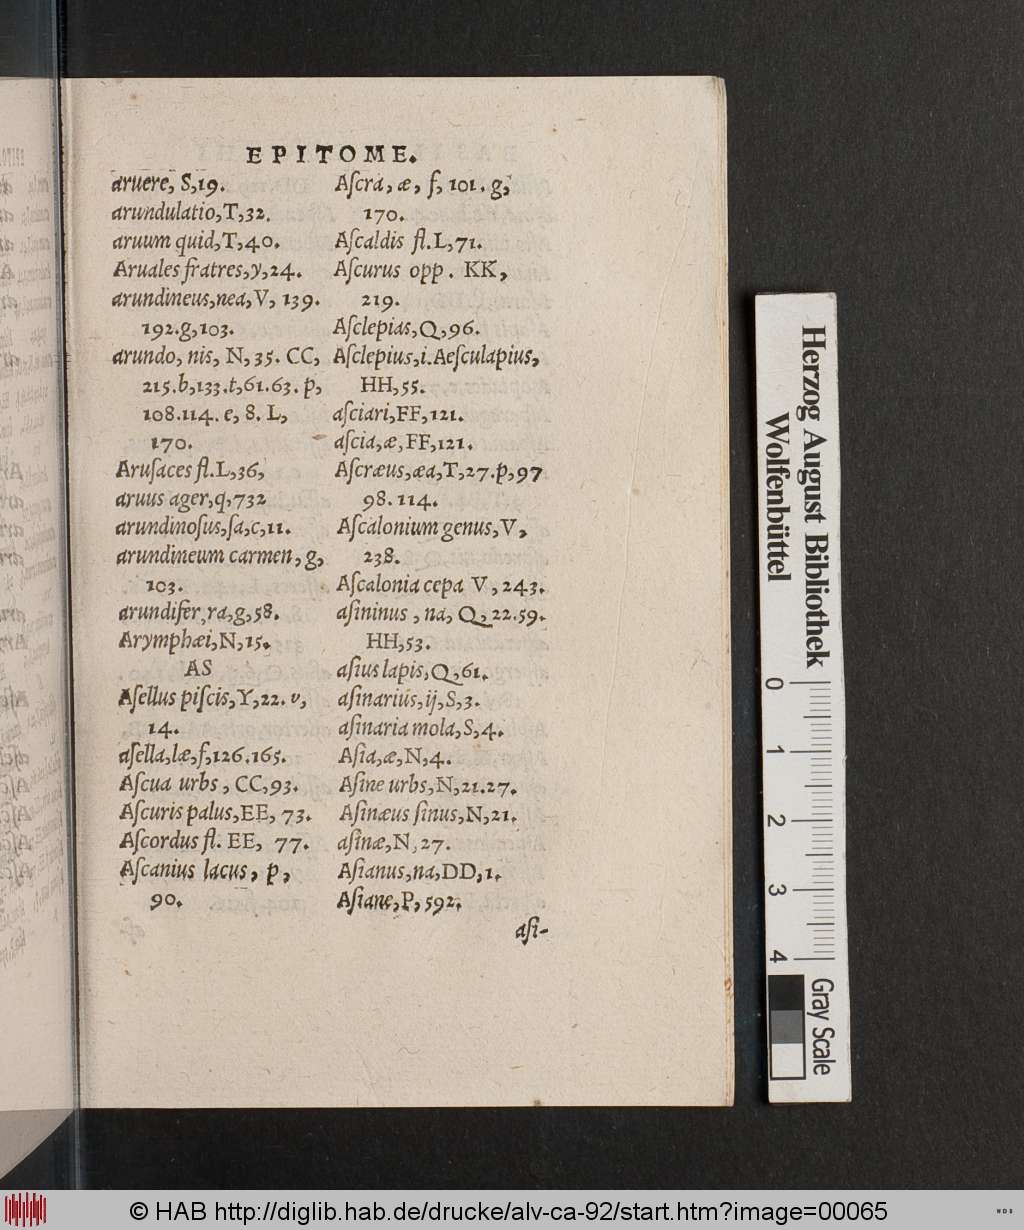 EPITOME.
aruere, S,19.
arundulatio,T,32.
aruum quid,T,40.
Aruales fratres,y,24.
arundineus,nea,V, 139.
192.g,103.
arundo, nis, N, 35. CC,
215.b,133.t,61.63. p,
108.114. e, 8. L,
170.
Aruſaces fl.L,36,
aruus ager,q,732
arundinoſus,ſa,c,11.
arundineum carmen, g,
103.
arundifer,ra,g,58.
Arymphæi,N,15.
AS
Aſellus piſcis,Y,22. v,
14.
aſella,læ,f,126.165.
Aſcua urbs, CC,93.
Aſcuris palus,EE, 73.
Aſcordus fl. EE, 77.
Aſcanius lacus, p,
90.
Aſcra, æ, f, 101. g,
170.
Aſcaldis fl.L,71.
Aſcurus opp. KK,
219.
Aſclepias,Q,96.
Aſclepius,i.Aeſculapius,
HH,55.
aſciari,FF,121.
aſcia,æ,FF,121.
Aſcræus,æa,T,27.p,97
98. 114.
Aſcalonium genus,V,
238.
Aſcalonia cepa V, 243.
aſininus, na, Q, 22.59.
HH,53.
aſius lapis,Q,61.
aſinarius,ij,S,3.
aſinaria mola,S,4.
Aſia,æ,N,4.
Aſine urbs,N,21.27.
Aſinæus ſinus,N,21.
aſinæ,N,27.
Aſianus,na,DD,1.
Aſiane,P,592.
aſi-
Herzog August Bibliothek
Wolfenbüttel
0 1 2 3 4
Gray Scale
© HAB http://diglib.hab.de/drucke/alv-ca-92/start.htm?image=00065